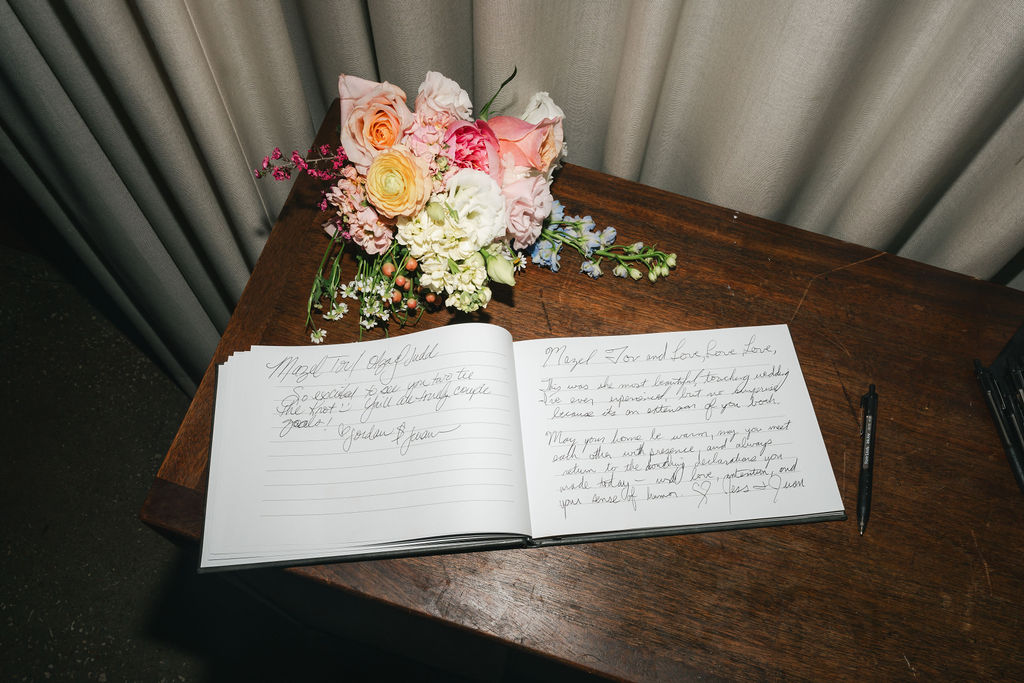 Mazel Tov! Olga & Judd
So excited to see you two tie
the knot! :) You'll are truly couple
goals!
♡ Jordan &
Mazel Tov and Love, Love, Love,
This was the most beautiful, touching wedding
I've ever experienced, but no surprise
because its an extension of you both.
May your home be warm, may you meet
each other with presence, and always
return to the declarations you
made today – with love, intention, and
your sense of humor. ♡ Jess & Juan